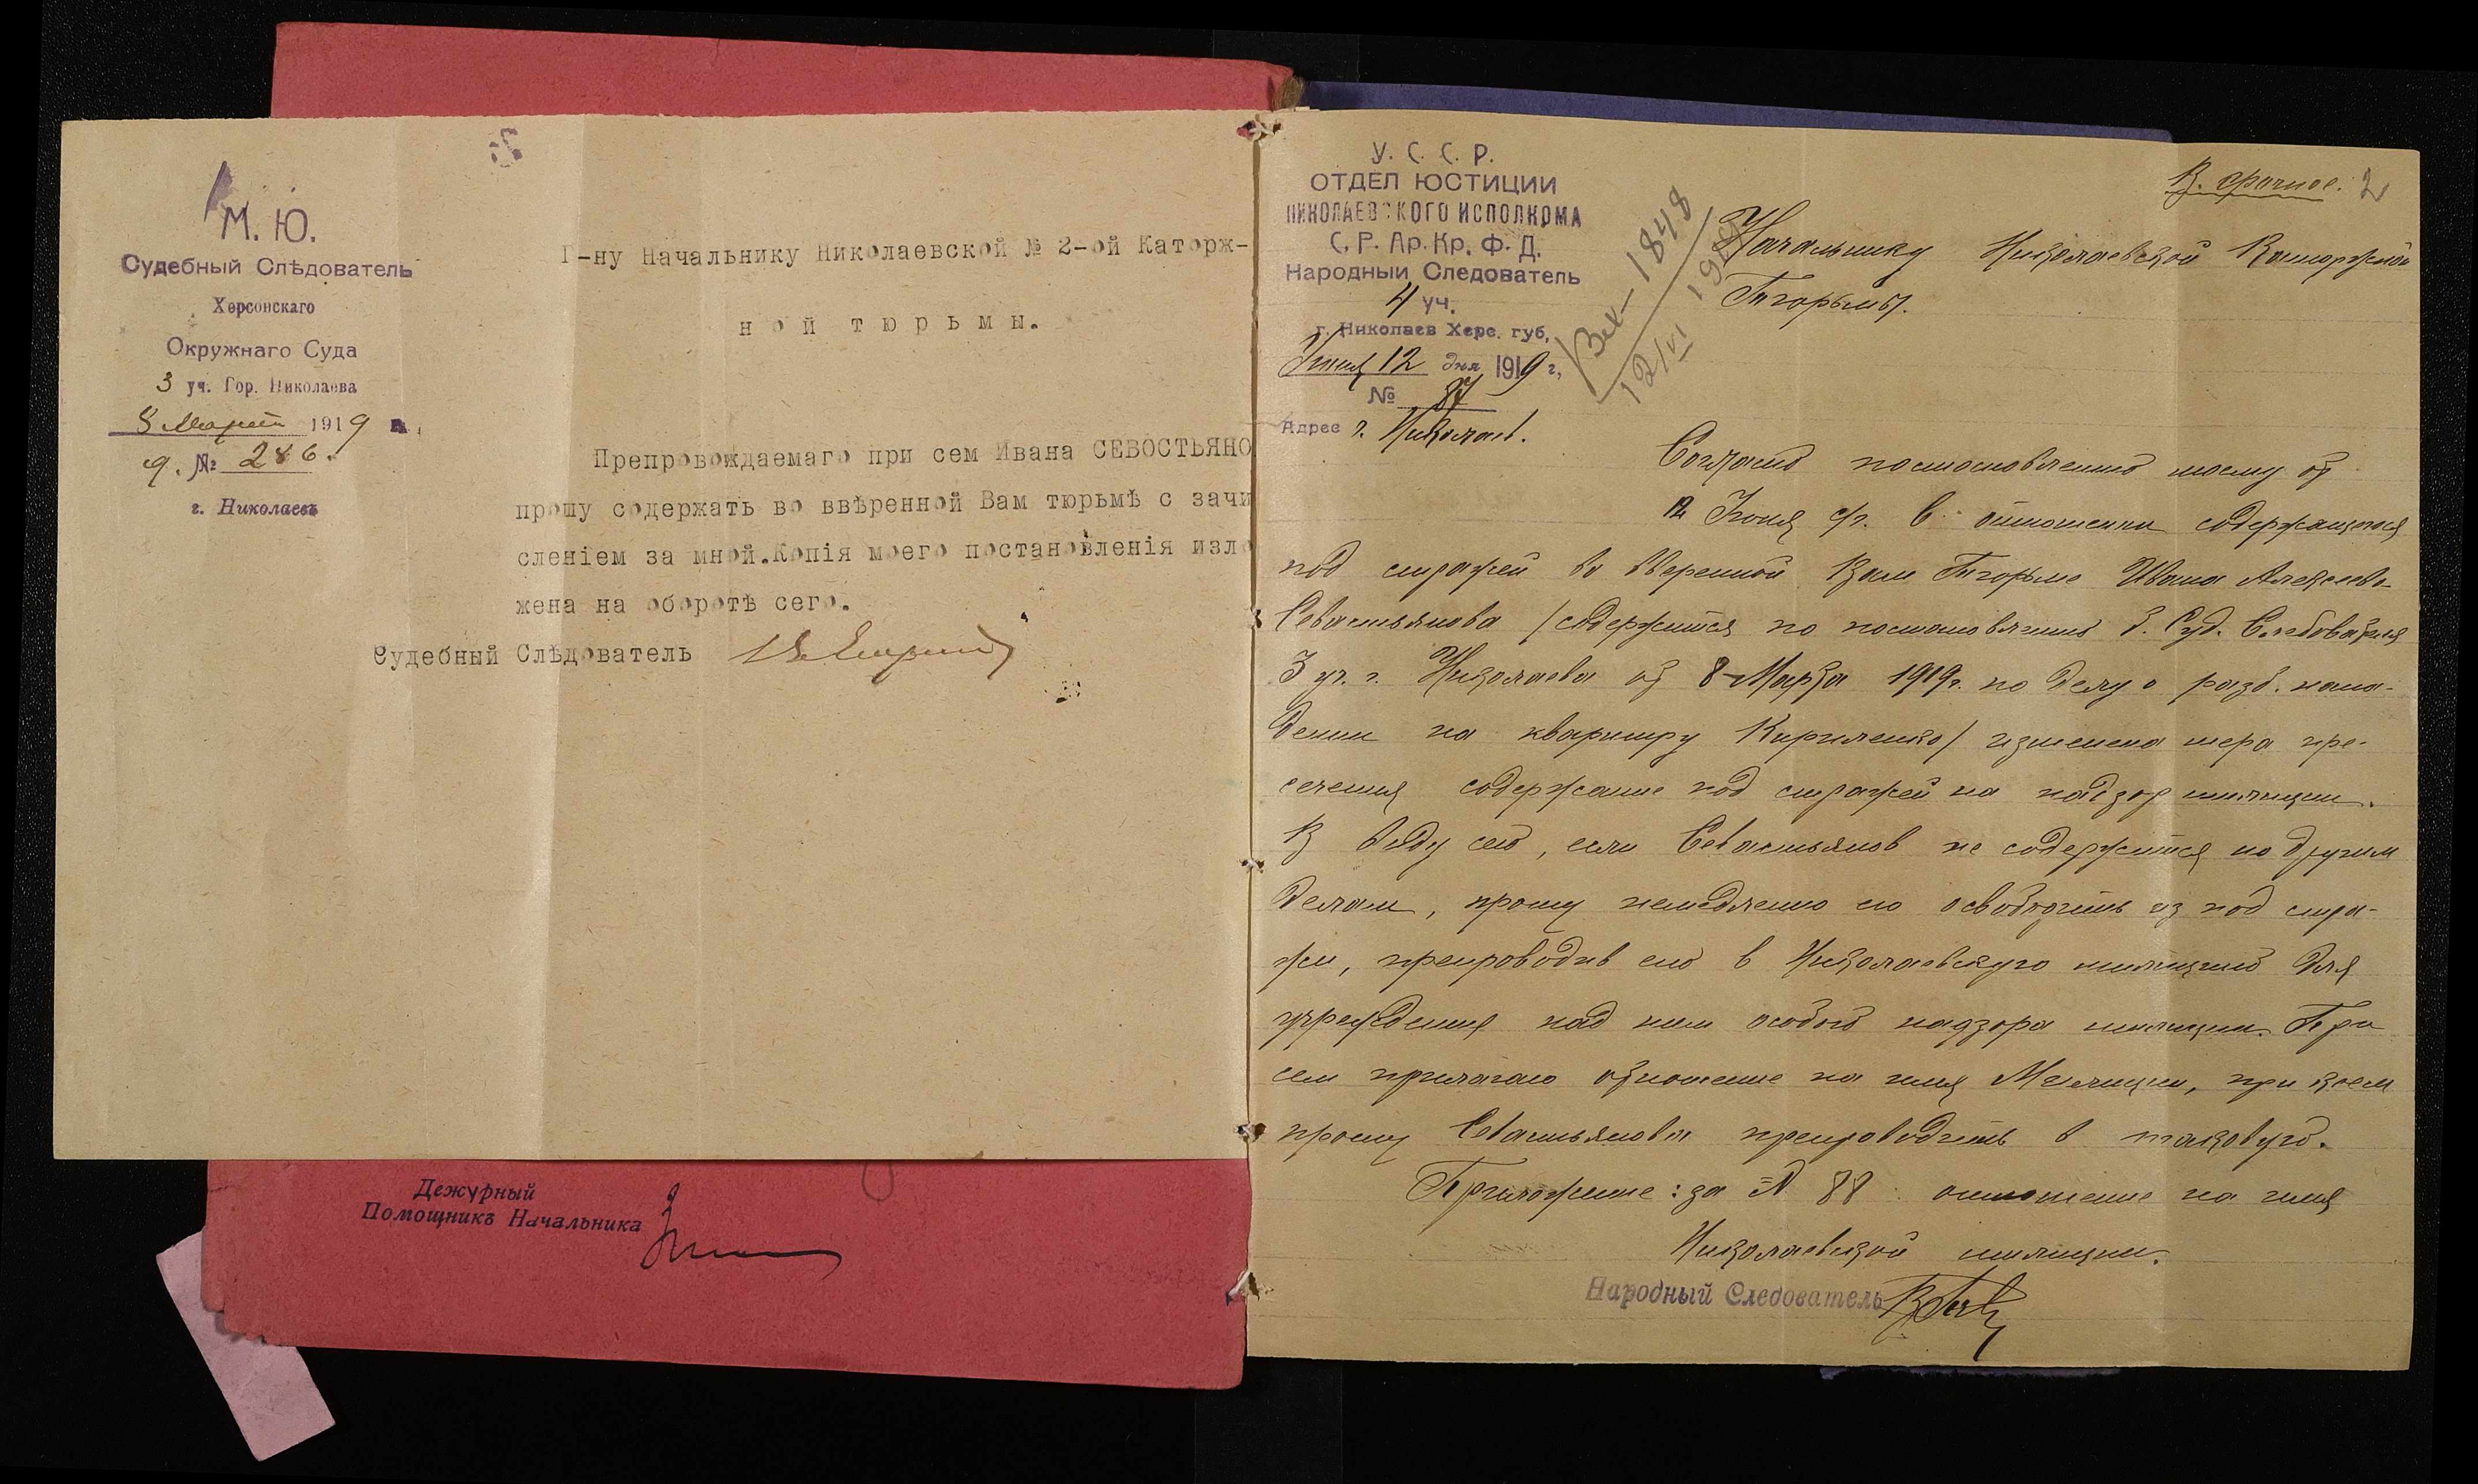 М. Ю.
Судебный Слѣдователь
Херсонскаго
Окружнаго Суда
3 уч. Гор. Николаева
8 Марта 1919 г.
№ 286.
г. Николаевъ
Г-ну Начальнику Николаевской № 2-ой Каторж-
ной тюрьмы.
Препровождаемаго при сем Ивана СЕВОСТЬЯНО
прошу содержать во ввѣренной Вам тюрьмѣ с зачи
сленіем за мной.Копія моего постановленія изло
жена на оборотѣ сего.
Судебный Слѣдователь
Дежурный
Помощникъ Начальника
У. С. С. Р.
ОТДЕЛ ЮСТИЦИИ
НИКОЛАЕВСКОГО ИСПОЛКОМА
С. Р. Ар. Кр. Ф. Д.
Народный Следователь
4 уч.
г. Николаев Херс. губ,
Июня 12 дня 1919 г,
№ 87
Адрес г. Николаев.
Вх-1848
12/VI 1919
В. срочное. 2
Начальнику Николаевской Каторжной
Тюрьмы.
Согласно постановлению моему от
12 Июня с/г. в отношении содержащегося
под стражей во вверенной Вам Тюрьме Ивана Алексеева
Севастьянова /содержится по постановлению б. Суд. Следователя
3 уч. г. Николаева от 8 Марта 1919 г. по делу о разб. напа-
дении на квартиру Кириленко/ изменена мера пре-
сечения содержание под стражей на надзор милиции.
В виду сего, если Севастьянов не содержится по другим
делам, прошу немедленно его освободить из под стра-
жи, препроводив его в Николаевскую милицию для
учреждения над ним особого надзора милиции. При
сем прилагаю отношение на имя Милиции, при коем
прошу Севастьянова препроводить в таковую.
Приложение: за № 88 отношение на имя
Николаевской милиции.
Народный Следователь